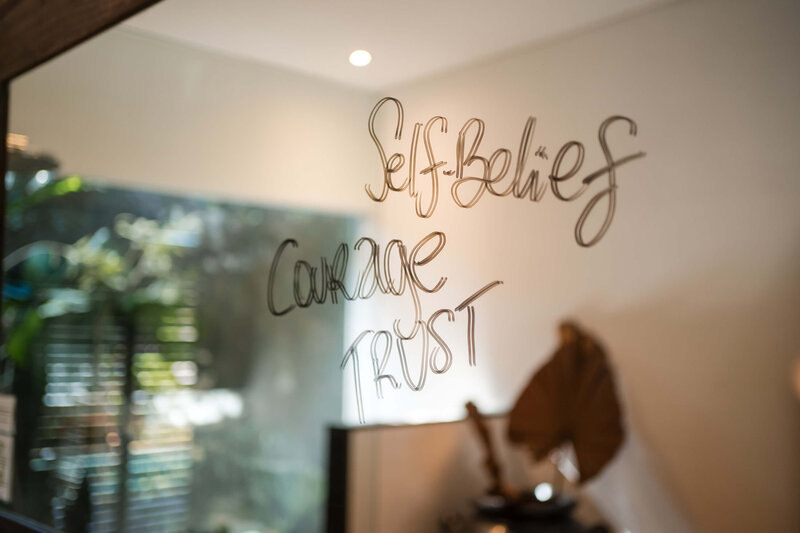 Self-Belief
Courage
TRUST